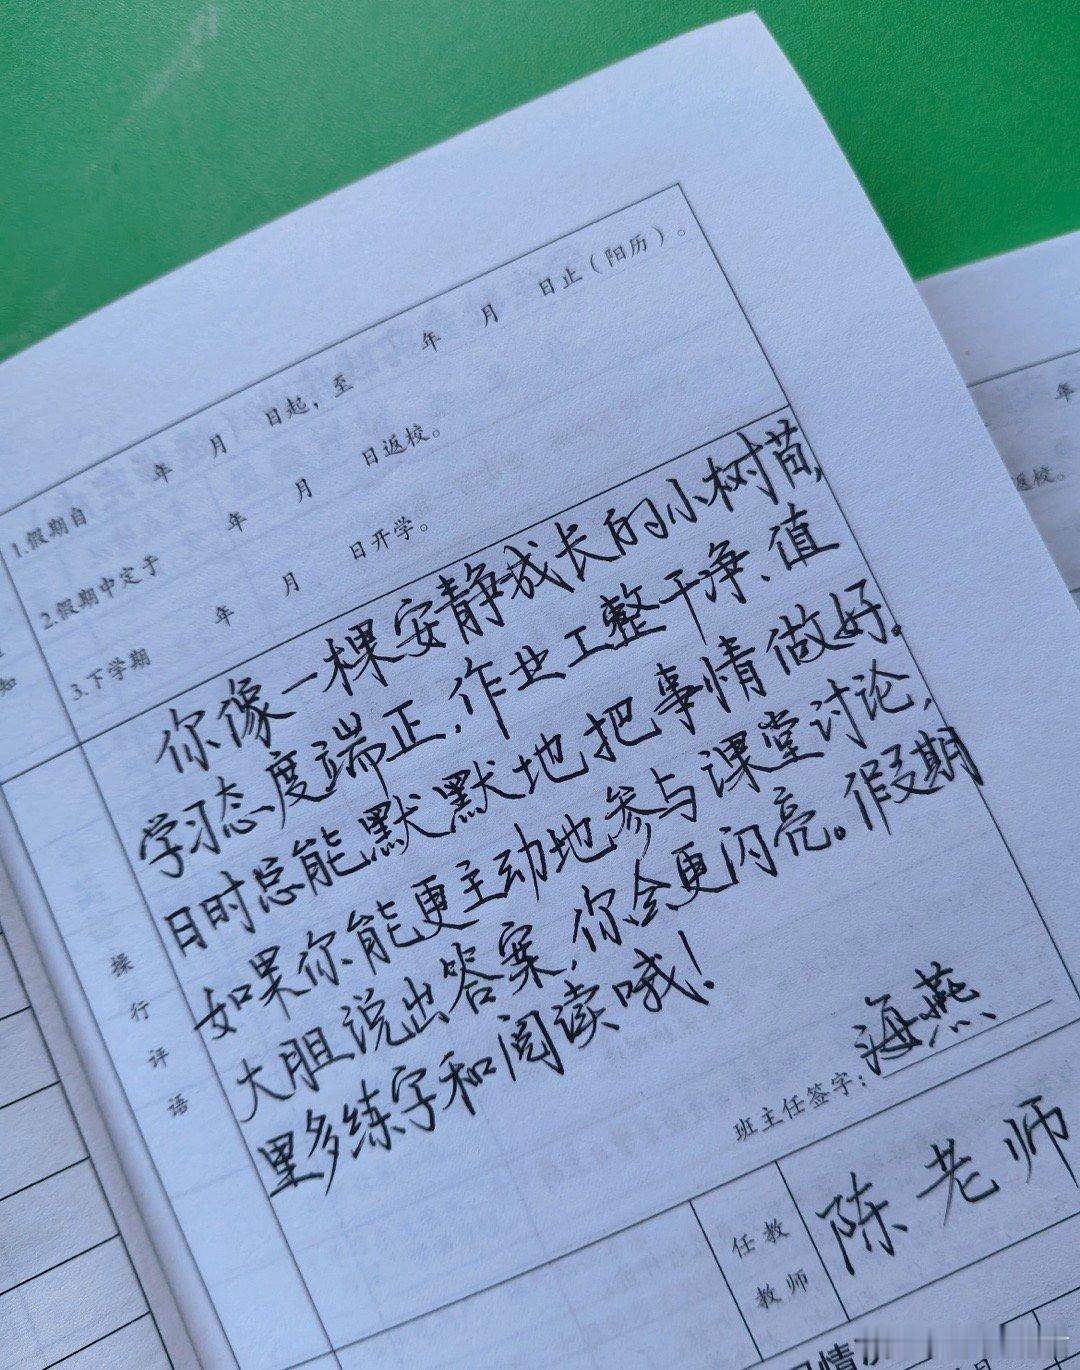 1.假期自 年 月 日起，至 年 月 日止（阳历）。
2.假期中定于 年 月 日返校。
3.下学期 年 月 日开学。
操行评语
你像一棵安静成长的小树苗，
学习态度端正，作业工整干净、值
日时总能默默地把事情做好。
如果你能更主动地参与课堂讨论，
大胆说出答案，你会更闪亮。假期
里多练字和阅读哦！
班主任签字：海燕
任教教师
陈老师
年
返校。
知